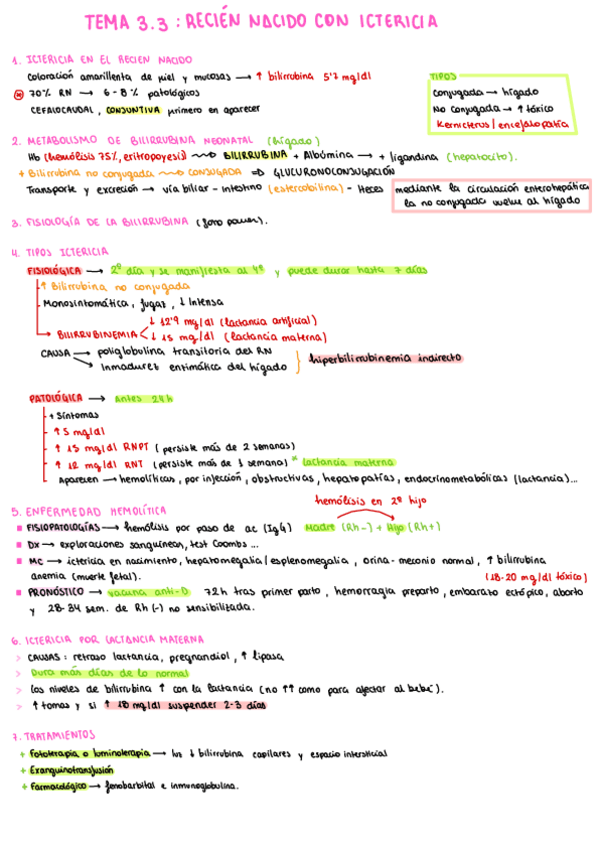 TEMA 3.3 : RECIÉN NACIDO CON ICTERICIA
1. ICTERICIA EN EL RECIEN NACIDO
Coloración amarillenta de piel y mucosas → ↑ bilirrubina 5'7 mg/dl
* 70% RN → 6-8% patológicos
CEFALOCAUDAL, CONJUNTIVA primero en aparecer
TIPOS
Conjugada → hígado
No conjugada → ↑ tóxico
Kernicterus / encefalopatía
2. METABOLISMO DE BILIRRUBINA NEONATAL (hígado)
Hb (hemólisis 75%, eritropoyesi) → BILIRRUBINA + Albúmina → + ligandina (hepatocito).
+ Bilirrubina no conjugada → CONJUGADA ⇒ GLUCURONOCONJUGACIÓN
Transporte y excreción → vía biliar - Intestino (estercobilina) - Heces
mediante la circulación enterohepática
la no conjugada vuelve al hígado
3. FISIOLOGÍA DE LA BILIRRUBINA (foto power).
4. TIPOS ICTERICIA
FISIOLÓGICA → 2º día y se manifiesta al 4º y puede durar hasta 7 días
↑ Bilirrubina no conjugada
Monosintomática, fugaz, ↓ Intensa
BILIRRUBINEMIA < ↓ 12'9 mg/dl (lactancia artificial)
↓ 15 mg/dl (lactancia materna)
CAUSA → poliglobulina transitoria del RN
→ Inmadurez entimática del hígado
} hiperbilirrubinemia indirecto
PATOLÓGICA → Antes 24h
+ Síntomas
↑ 5 mg/dl
↑ 15 mg/dl RNPT (persiste más de 2 semanas)
↑ 12 mg/dl RNT (persiste más de 1 semana) * lactancia materna
Aparecen → hemolíticas, por injección, obstructivas, hepatopatías, endocrinometabólicas (lactancia)...
5. ENFERMEDAD HEMOLÍTICA
hemólisis en 2º hijo
FISIOPATOLOGÍAS → hemólisis por paso de ac (IgG) Madre (Rh-) + Hijo (Rh+)
Dx → exploraciones sanguíneas, test Coombs...
MC → ictericia en nacimiento, hepatomegalia / esplenomegalia, orina-meconio normal, ↑ bilirrubina
anemia (muerte fetal). (18-20 mg/dl tóxico)
PRONÓSTICO → vacuna anti-D 72h tras primer parto, hemorragia preparto, embarato ectópico, aborto
y 28-34 sem. de Rh (-) no sensibilizada.
6. ICTERICIA POR LACTANCIA MATERNA
> CAUSAS : retraso lactancia, pregnandiol, ↑ lipasa
> Dura más días de lo normal
> Los niveles de bilirrubina ↑ con la lactancia (no ↑↑ como para afectar al bebé).
> ↑ tomas y si ↑ 18 mg/dl suspender 2-3 días
7. TRATAMIENTOS
+ Fototerapia o luminoterapia → luz ↓ bilirrubina capilares y espacio intersticial
+ Exanguinotransfusión
+ Farmacológico → fenobarbital e inmunoglobulina.